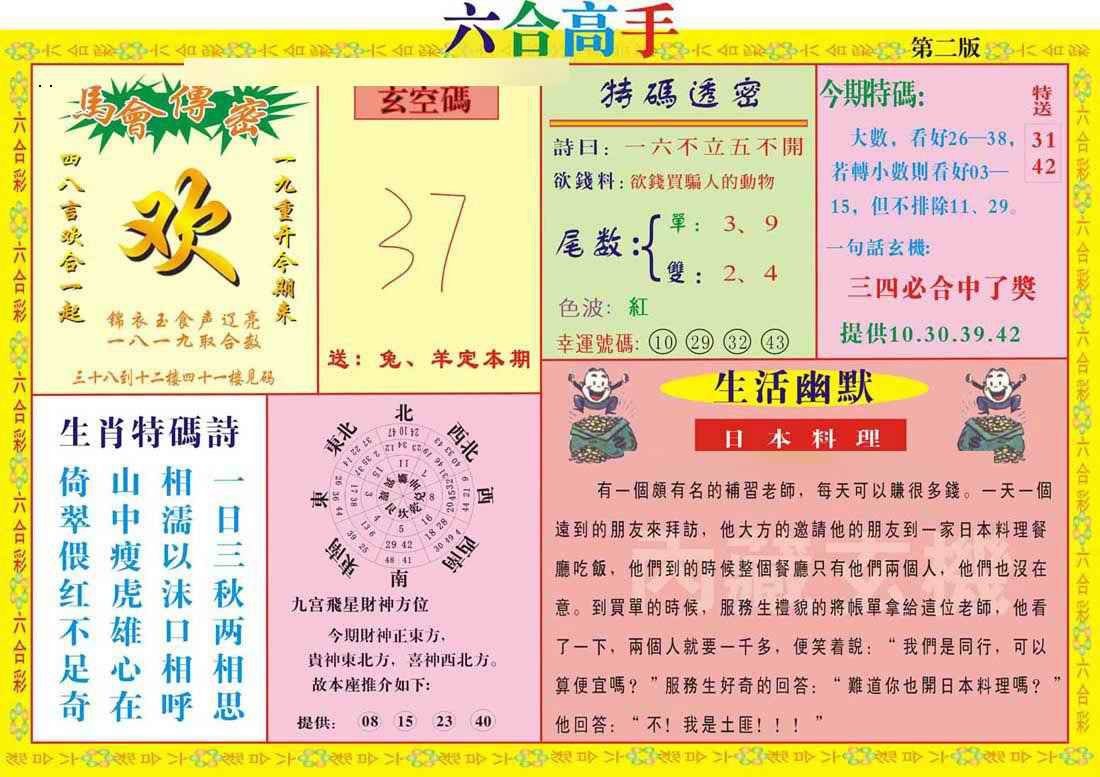 六合高手
第二版
馬會傳密
一九重开今期来
欢
四八言欢合一起
锦衣玉食声辽亮
一八一九取合数
三十八到十二楼四十一楼見码
玄空碼
37
送：兔、羊定本期
特碼透密
詩曰：一六不立五不開
欲錢料：欲錢買騙人的動物
尾数：
單：3、9
雙：2、4
色波：紅
幸運號碼：10 29 32 43
今期特碼:
特送
31
42
大數，看好26—38，
若轉小數則看好03—
15，但不排除11、29。
一句話玄機:
三四必合中了獎
提供10.30.39.42
生肖特碼詩
一日三秋两相思
相濡以沫口相呼
山中瘦虎雄心在
倚翠偎红不足奇
北
東北
西北
東
西
東南
西南
南
九宫飛星財神方位
今期財神正東方，
貴神東北方，喜神西北方。
故本座推介如下：
提供: 08 15 23 40
生活幽默
日本料理
有一個頗有名的補習老師，每天可以賺很多錢。一天一個
遠到的朋友來拜訪，他大方的邀請他的朋友到一家日本料理餐
廳吃飯，他們到的時候整個餐廳只有他們兩個人，他們也沒在
意。到買單的時候，服務生禮貌的將帳單拿給這位老師，他看
了一下，兩個人就要一千多，便笑着說：“我們是同行，可以
算便宜嗎？”服務生好奇的回答：“難道你也開日本料理嗎？”
他回答：“不！我是土匪！！！”
六合彩